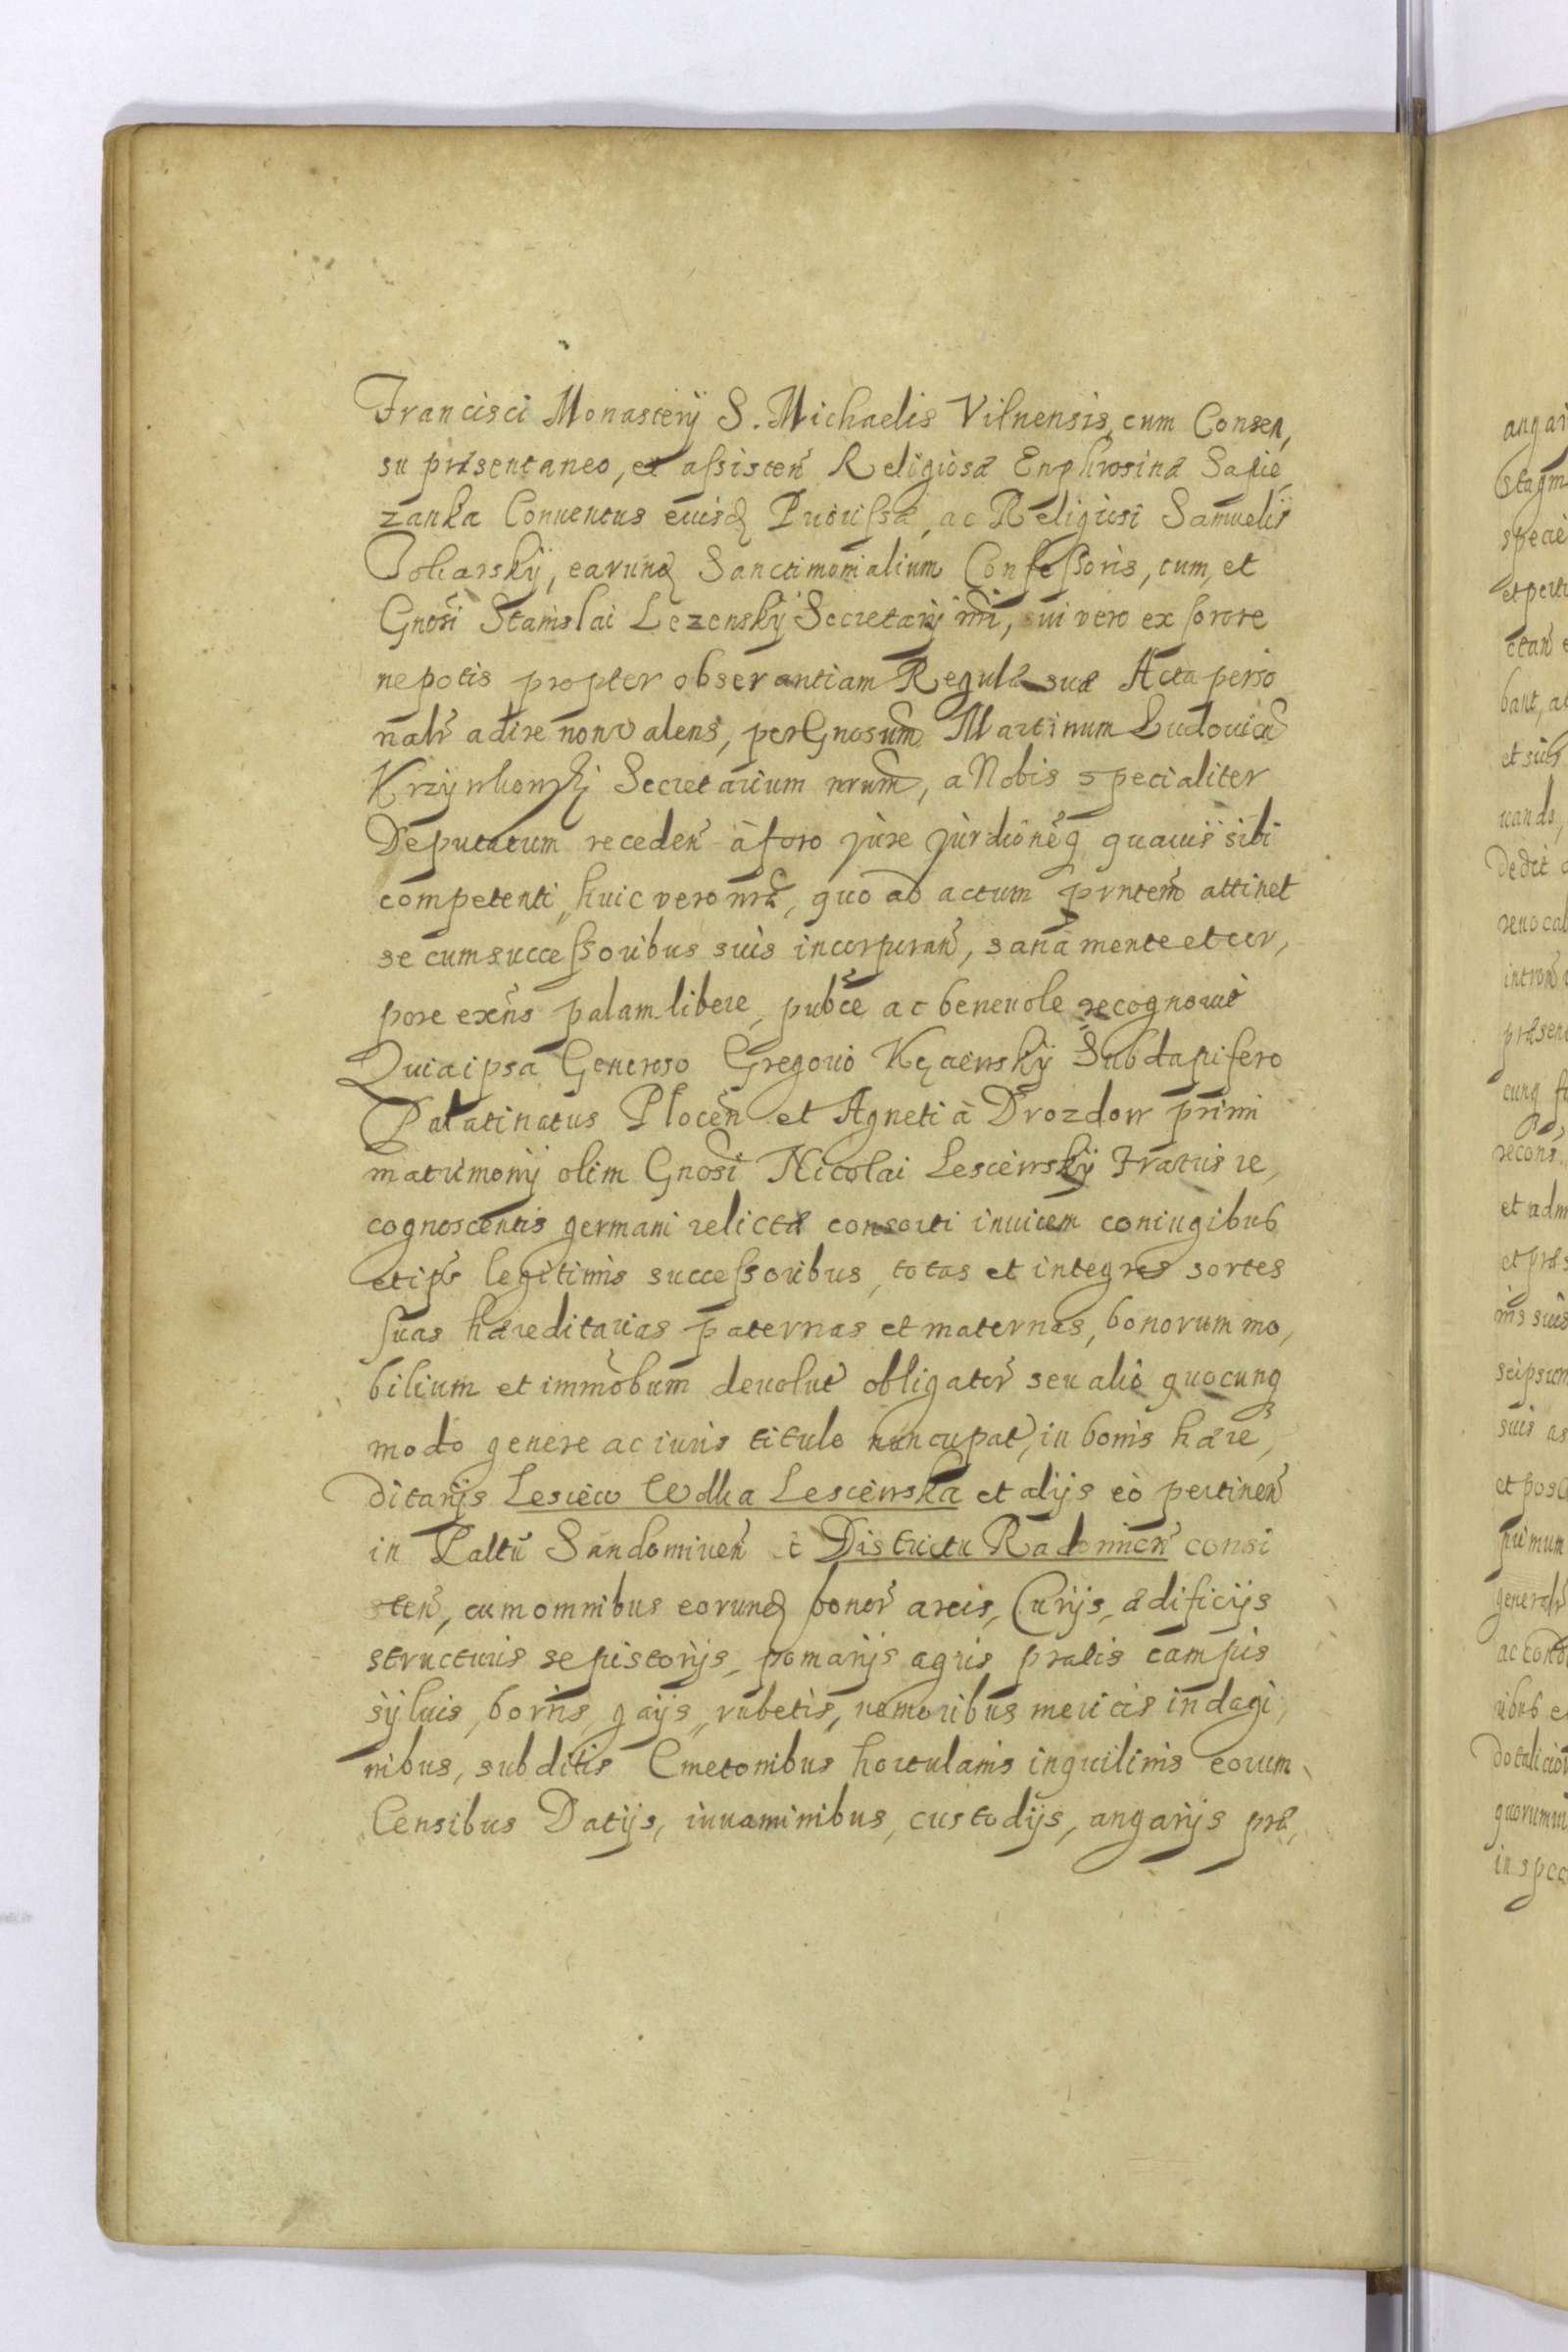 Francisci Monasterÿ S. Michaelis Vilnensis, cum Consen,
su præsentaneo, et assisten̄ Religiosæ Euphrosinæ Sapie,
zanka Conuentus euisđ Priorissæ, ac Religiosi Samuelis
earunđ Sanctimonialium Confessoris, tum, et
Gnosi Stanislai Lezenskÿ Secretarÿ nri, sui vero ex sorore
nepotis propter obserantiam Regulæ suæ Acta perso
nalr̄ adire non valens, per Gnosum Martinum Ludouicū
Krzÿwkowski Secretarium nrum, a Nobis specialiter
Deputatum receden̄ à foro jure jurdiōneq quauis sibi
competenti, huic vero nrō, quo ad actum pn̄tem attinet
se cum successoribus suis incorporan̄, sana mente et cor,
pore exn̄s palam libere, pubce ac beneuole recognouit
Quia ipsa Generoso Gregorio Subdapifero
Palatinatus Plocen̄ et Agneti à Drozdow primi
matrimonÿ olim Gnosi Nicolai Lesciewskÿ Fratris re,
cognoscentis germani relictæ consorti inuicem coniugibus
et ipsōr legitimis successoribus, totas et integras sortes
suas hæreditarias paternas et maternas, bonorum mo,
bilium et immobum deuolut̄ obligator̄ seu alio quocunq
modo genere ac iuris titulo nuncupat̄, in bonis hære,
ditarÿs Lesciew Wolka Lesciewska et alÿs eò pertinen̄
in Paltū Sandomirien̄ et Districtu Radomien̄ consi
sten̄, cum omnibus eorunđ bonor̄ areis, Curÿs, ædificÿs
structuris sepistorÿs, pomarÿs agris pratis campis
sÿluis, borris, gaÿs, rubetis, nemoribus mericis indagi,
nibus, subditis Cmetonibus hortulanis inquilinis eorum
Censibus Datÿs, iuuaminibus, custodÿs, angarÿs præ,